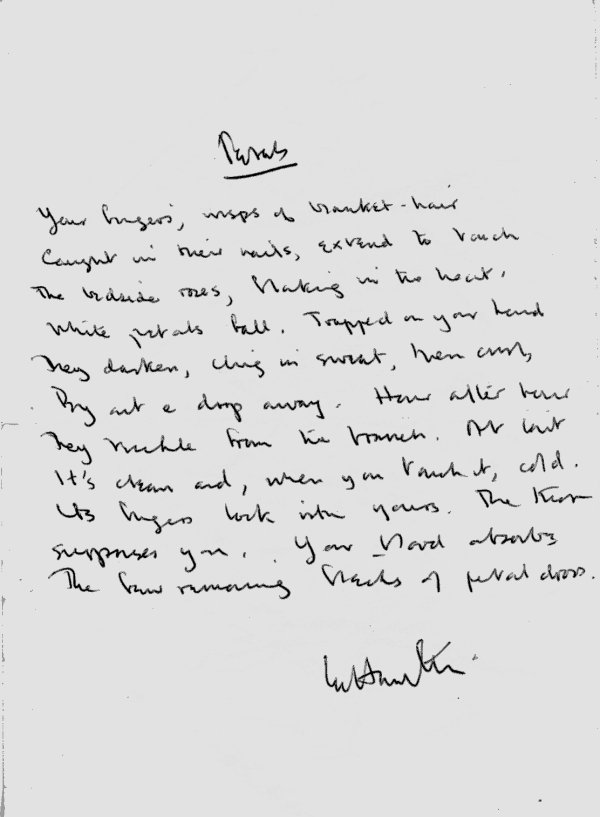 Petals
Your fingers, wisps of blanket-hair
Caught in their nails, extend to touch
The bedside roses, flaking in the heat.
White petals fall. Trapped on your hand
They darken, cling in sweat, then crush,
Dry out & drop away. Hour after hour
They trickle from the branch. At last
It's clean and, when you touch it, cold.
Its fingers lock into yours. The
surprises you. Your blood absorbs
The few remaining flecks of petal dross.